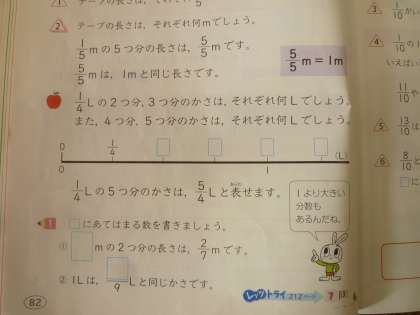 テープの長さは、それぞれ何mでしょう。
1/5 mの5つ分の長さは、5/5 mです。
5/5 mは、1mと同じ長さです。
5/5 m=1m
1/4 Lの2つ分、3つ分のかさは、それぞれ何Lでしょう。
また、4つ分、5つ分のかさは、それぞれ何Lでしょう。
0 1/4 (L)
0 1
1/4 Lの5つ分のかさは、5/4 Lと表せます。
1より大きい
分数も
あるんだね。
1 □にあてはまる数を書きましょう。
① □ mの2つ分の長さは、2/7 mです。
② 1Lは、□/9 Lと同じかさです。
82
レッツトライ 212ページ
3 1/10
4 1/10 の
いえば
11/10 や
5 13/10 は
6 8/10 と
□に